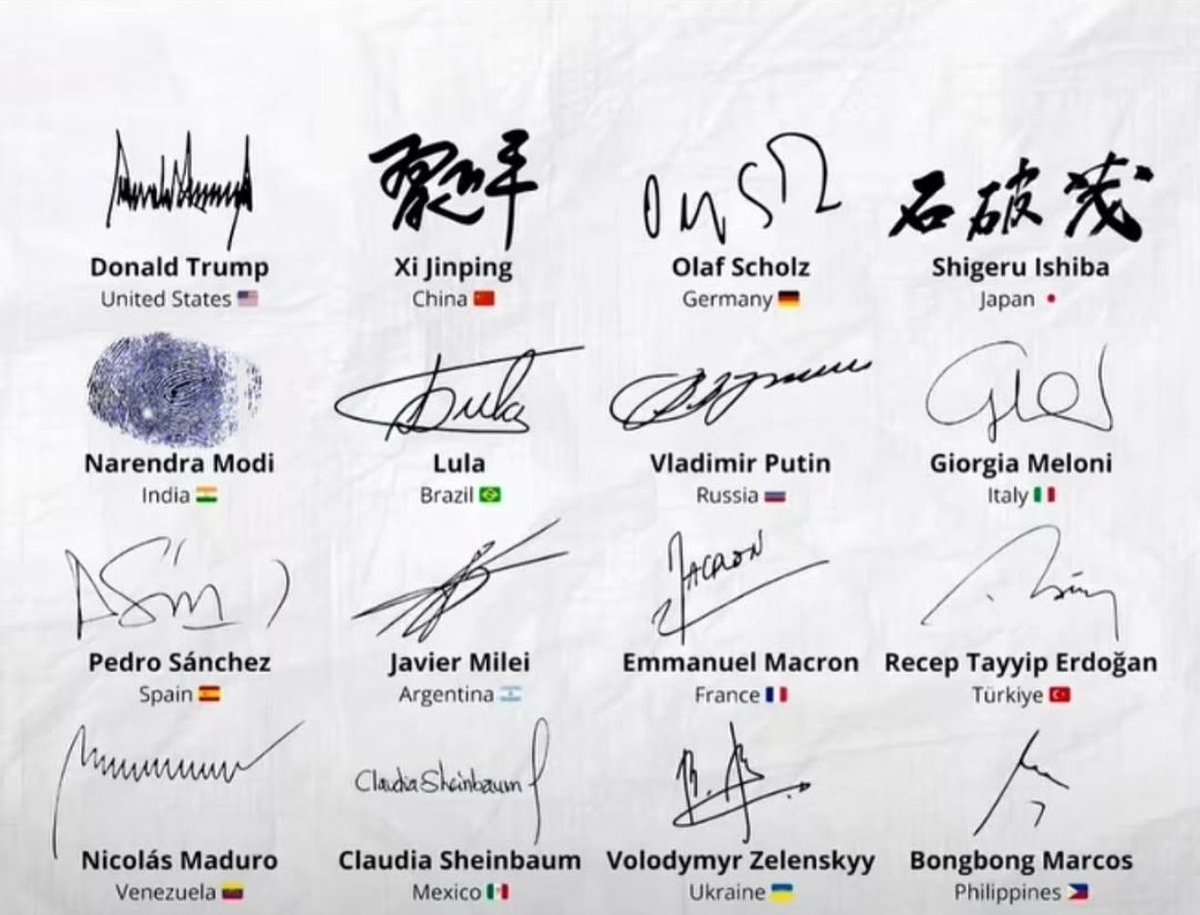 Donald Trump
United States
习近平
Xi Jinping
China
Olaf Scholz
Germany
石破茂
Shigeru Ishiba
Japan
Narendra Modi
India
Lula
Lula
Brazil
Vladimir Putin
Russia
Giorgia Meloni
Italy
Pedro Sánchez
Spain
Javier Milei
Argentina
MACRON
Emmanuel Macron
France
Recep Tayyip Erdoğan
Türkiye
Nicolás Maduro
Venezuela
Claudia Sheinbaum
Claudia Sheinbaum
Mexico
Volodymyr Zelenskyy
Ukraine
Bongbong Marcos
Philippines